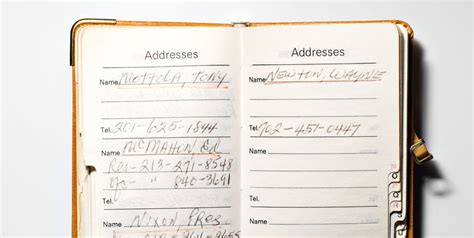 Addresses
Name MOTTOLA, TONY
Tel. 201-625-1844
Name MCMAHON, ED
Res-213-271-8548
ofc- " 840-3691
Tel.
Name NIXON PRES.
Addresses
Name NEWTON, WAYNE
Tel. 702-451-0447
Name
Tel.
Name